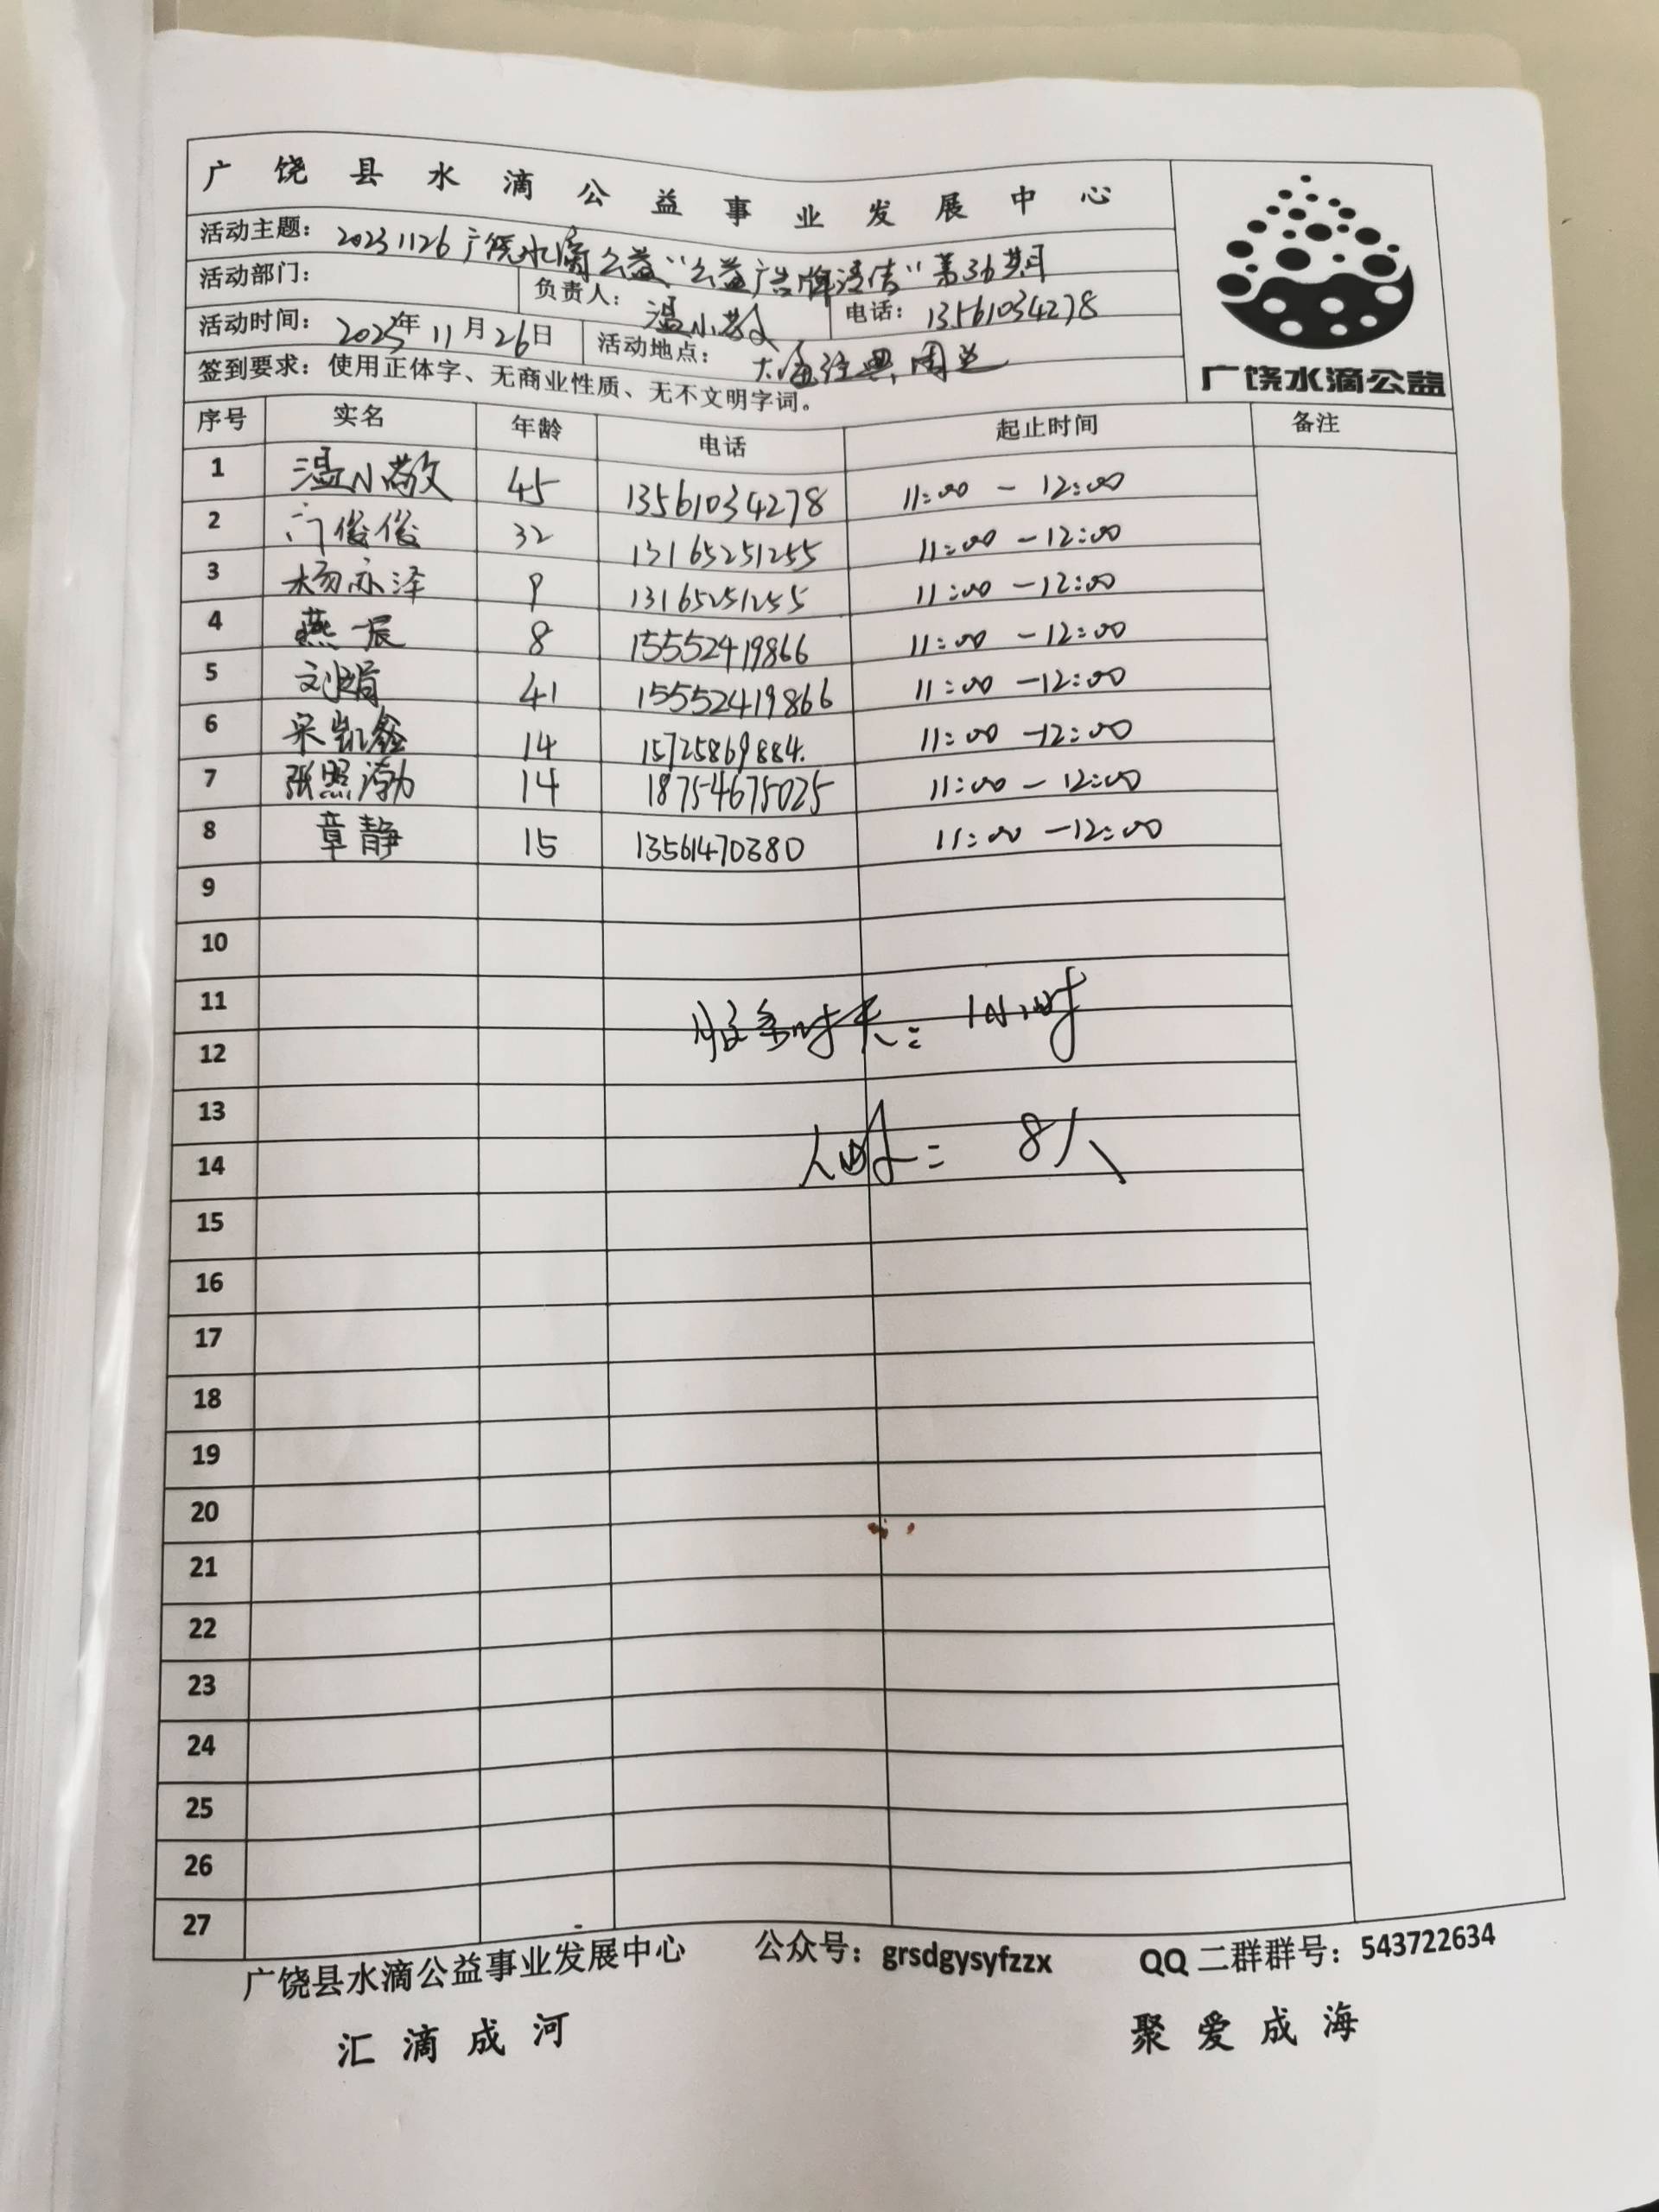 广饶县水滴公益事业发展中心
活动主题：20231126广饶水滴公益"公益广告牌清洁"第36期
活动部门： 负责人：温小敬 电话：13561034278
活动时间：2023年11月26日 活动地点：大海经典周边
签到要求：使用正体字、无商业性质、无不文明字词。
广饶水滴公益
序号 实名 年龄 电话 起止时间 备注
1 温小敬 45 13561034278 11:00 - 12:00
2 门俊俊 32 13165251255 11:00 - 12:00
3 杨亦泽 9 13165251255 11:00 - 12:00
4 燕一辰 8 15552419866 11:00 - 12:00
5 刘娟 41 15552419866 11:00 - 12:00
6 宋凯鑫 14 15725869884. 11:00 - 12:00
7 张照渤 14 18754675025 11:00 - 12:00
8 章静 15 13561470380 11:00 - 12:00
9
10
11
服务时长: 1小时
12
13
人数: 8人
14
15
16
17
18
19
20
21
22
23
24
25
26
27
广饶县水滴公益事业发展中心 公众号：grsdgysyfzzx QQ二群群号：543722634
汇滴成河 聚爱成海